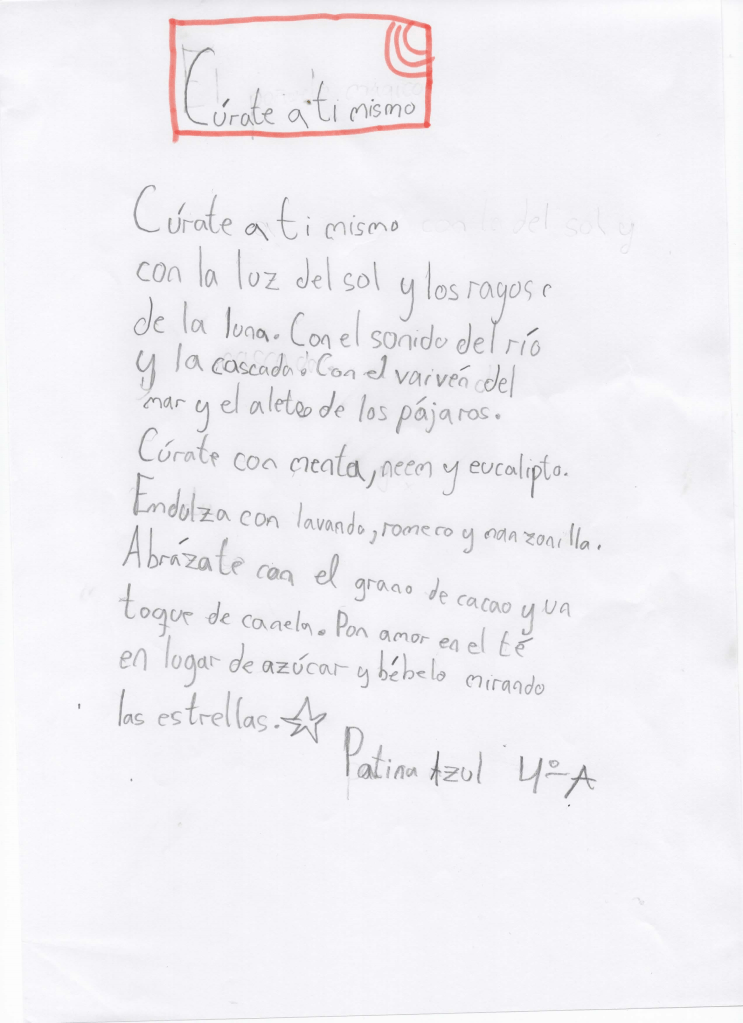 Cúrate a ti mismo
Cúrate a ti mismo
con la luz del sol y los rayos
de la luna. Con el sonido del río
y la cascada. Con el vaivén del
mar y el aleteo de los pájaros.
Cúrate con menta, neem y eucalipto.
Endulza con lavanda, romero y manzanilla.
Abrázate con el grano de cacao y un
toque de canela. Pon amor en el té
en lugar de azúcar y bébelo mirando
las estrellas.
Patina Azul 4º A